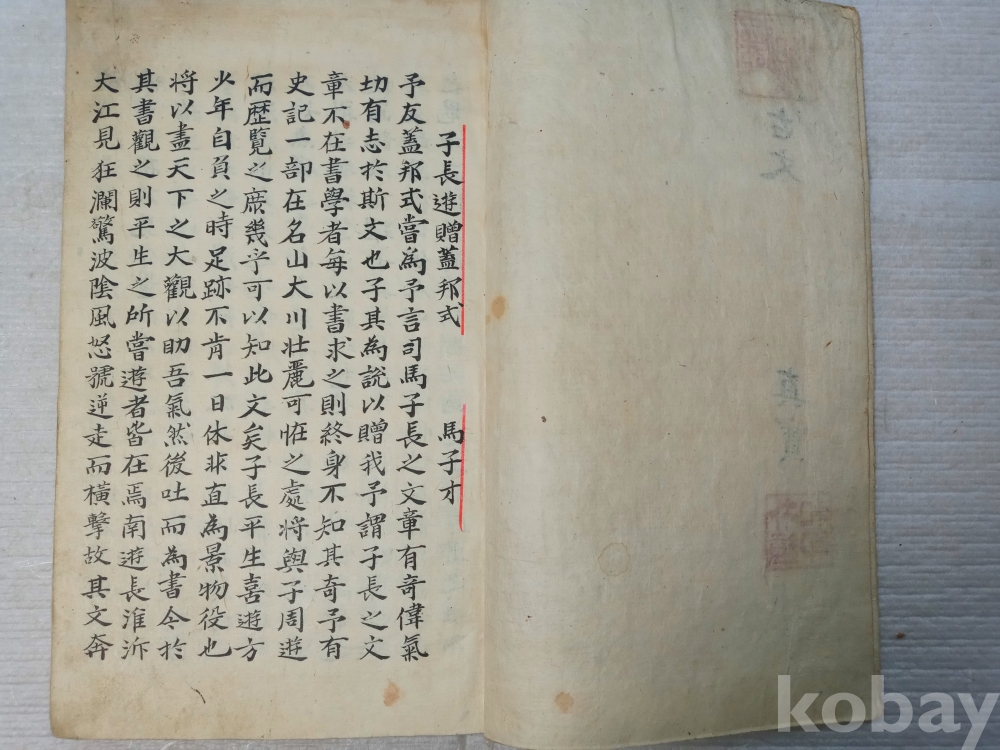 古文 真寶
子長遊贈蓋邦式 馬子才
予友蓋邦式嘗為予言司馬子長之文章有奇偉氣
切有志於斯文也子其為說以贈我予謂子長之文
章不在書學者每以書求之則終身不知其奇予有
史記一部在名山大川壯麗可恠之處將與子周遊
而歴覽之庶幾乎可以知此文矣子長平生喜遊方
少年自負之時足跡不肯一日休非直為景物役也
将以盡天下之大觀以助吾氣然後吐而為書今於
其書觀之則平生之所嘗遊者皆在焉南遊長淮泝
大江見狂瀾驚波陰風怒號逆走而橫擊故其文奔
kobay